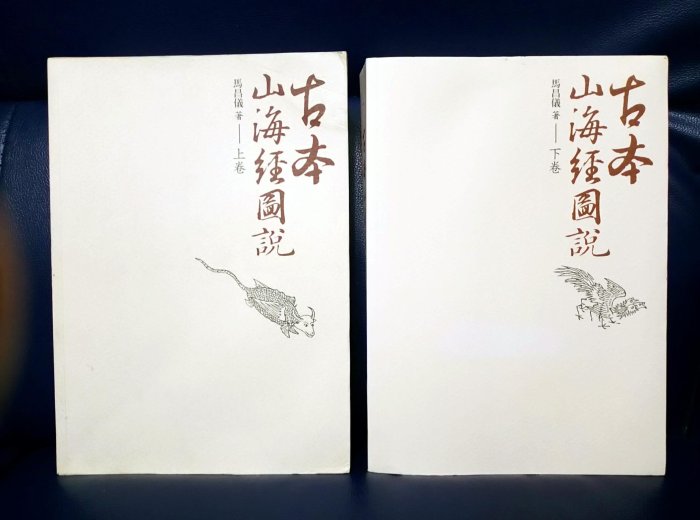 古本
山海經圖說
馬昌儀 著——上卷
古本
山海經圖說
馬昌儀 著——下卷